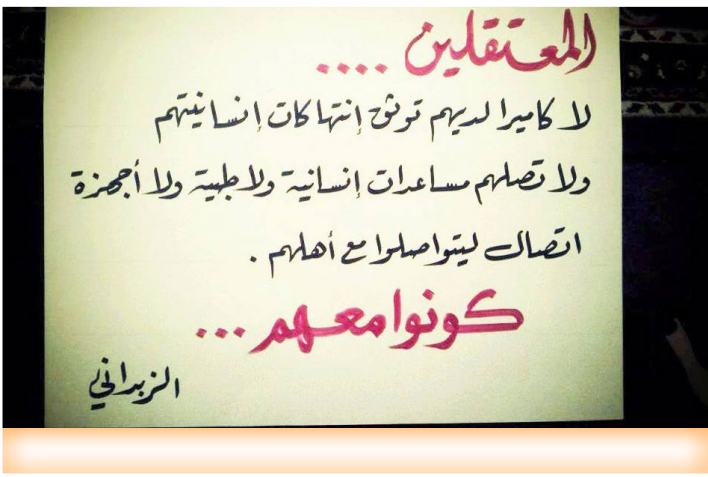 المعتقلين ....
لا كاميرا لديهم توثق إنتهاكات إنسانيتهم
ولا تصلهم مساعدات إنسانية ولا طبية ولا أجهزة
اتصال ليتواصلوا مع أهلهم .
كونوا معهم ...
الزبداني